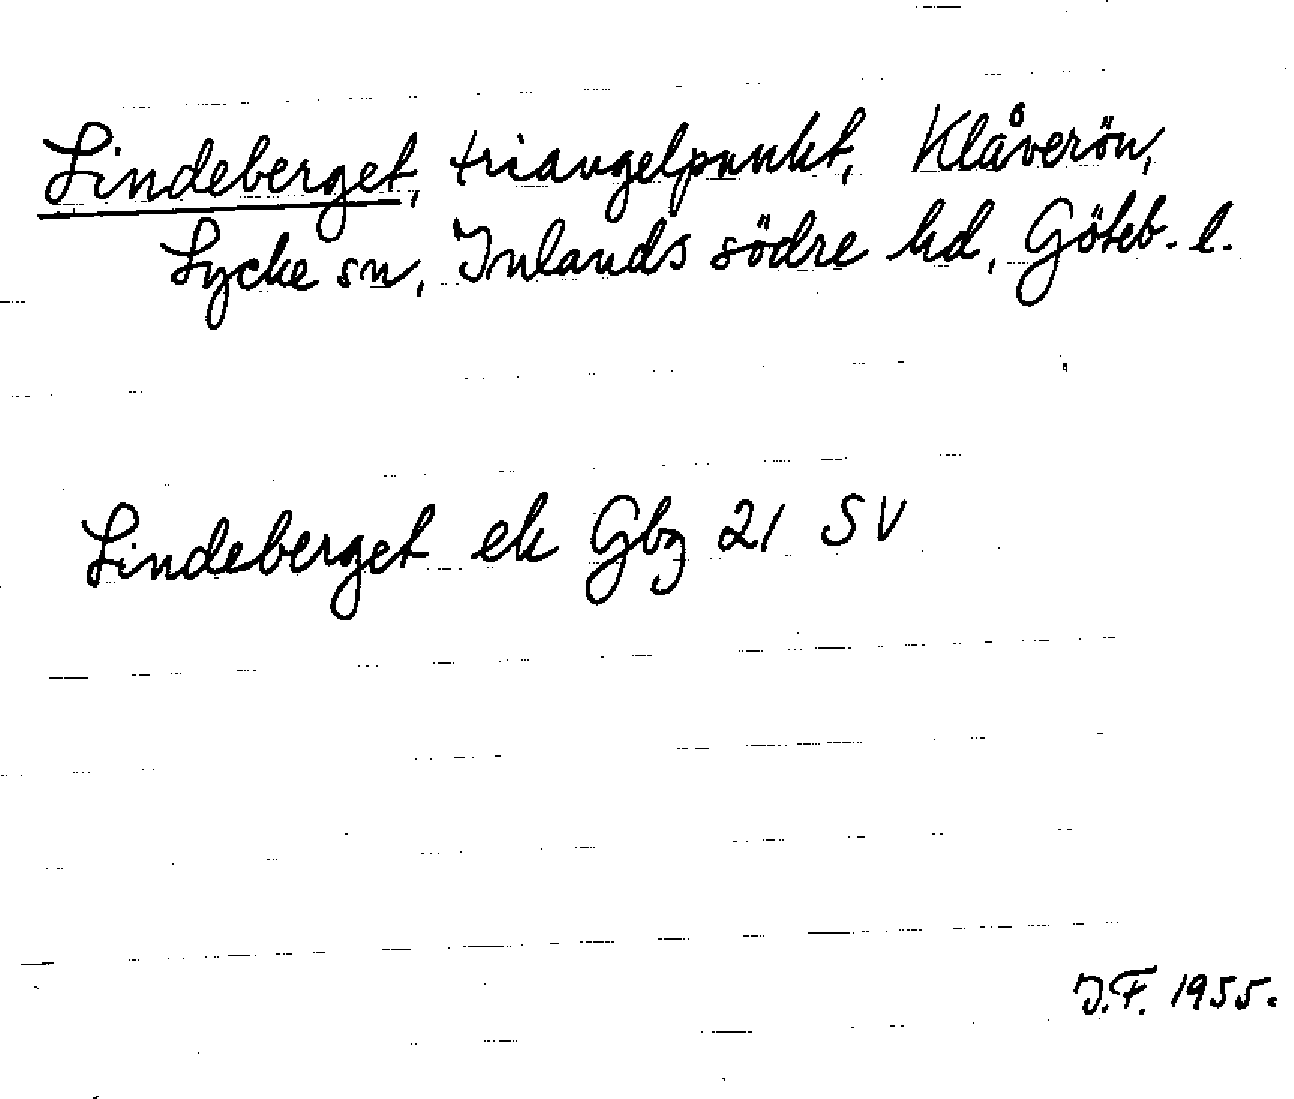 Lindeberget, triangelpunkt, Klåverön,
Lycke sn, Inlands södre hd, Göteb. l.
Lindeberget ek Gbg 21 SV
J.F. 1955.